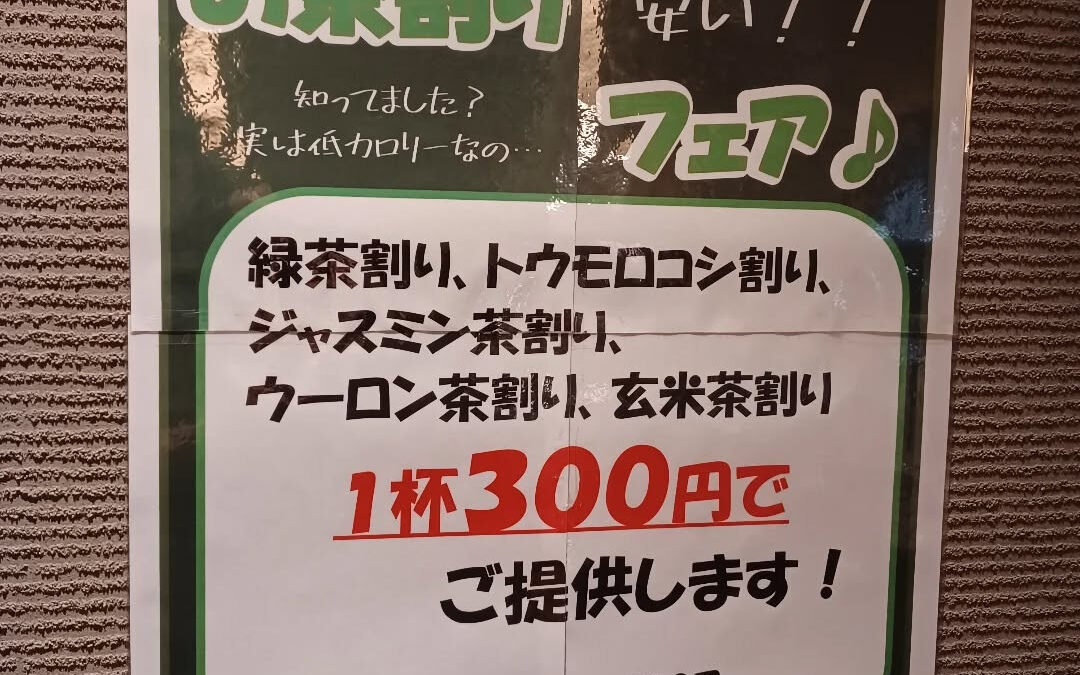 お茶割り 安い！！
知ってました？
実は低カロリーなの…
フェア♪
緑茶割り、トウモロコシ割り、
ジャスミン茶割り、
ウーロン茶割り、玄米茶割り
1杯300円で
ご提供します！